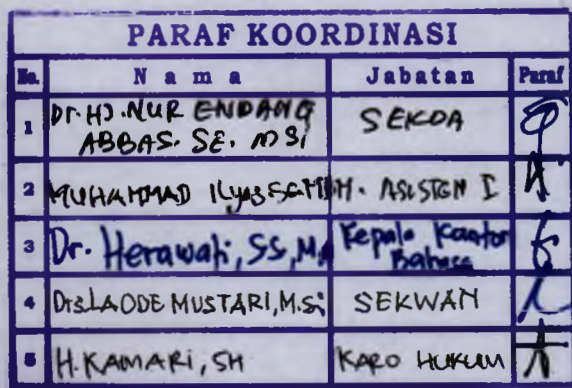 PARAF KOORDINASI
No. Nama Jabatan Paraf
1 Dr. HJ. NUR ENDANG ABBAS. SE. MSi SEKDA
2 MUHAMMAD Ilyas ASISTEN I
3 Dr. Herawati, SS, M. Kepala Kantor Bahasa
4 Drs. LA ODE MUSTARI, M.Si SEKWAN
5 H. KAMARI, SH KARO HUKUM